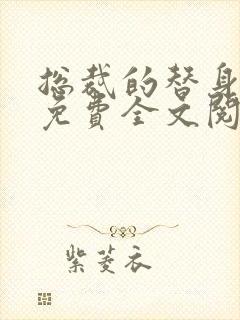 总裁的替身
免费全文阅
紫菱衣